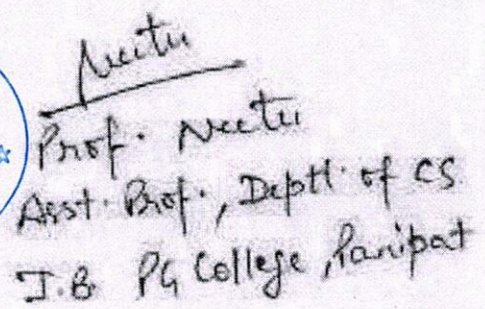 Neetu
Prof. Neetu
Asst. Prof., Deptt. of CS
I.B. PG College, Panipat